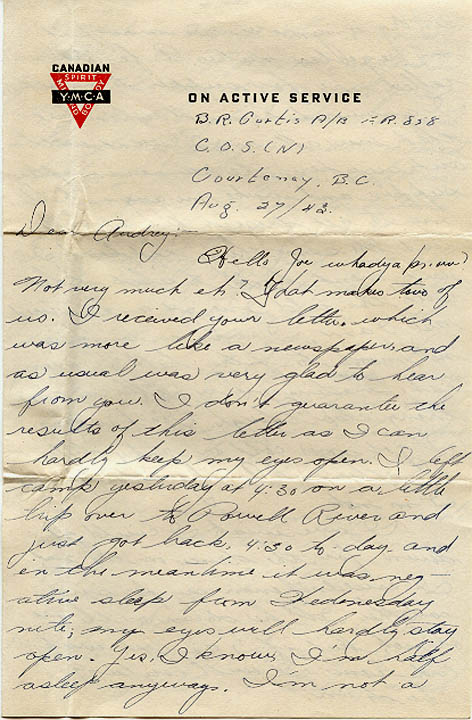 CANADIAN
SPIRIT
MIND BODY
Y·M·C·A
ON ACTIVE SERVICE
B.R. Curtis A/B R. 858
C.O.S. (N)
Courtenay, B.C.
Aug. 27/43.
Dear Audrey:-
Hello Joe whadya
Not very much eh? Idah makes two of
us. I received your letter which
was more like a newspaper, and
as usual was very glad to hear
from you. I don't guarantee the
results of this letter as I can
hardly keep my eyes open. I left
camp yesterday at 4:30 on a little
trip over to Powell River and
just got back, 4:30 to-day and
in the meantime it was neg-
ative sleep from Wednesday
nite; my eyes will hardly stay
open. Yes, I know, I'm half
asleep anyways. I'm not a